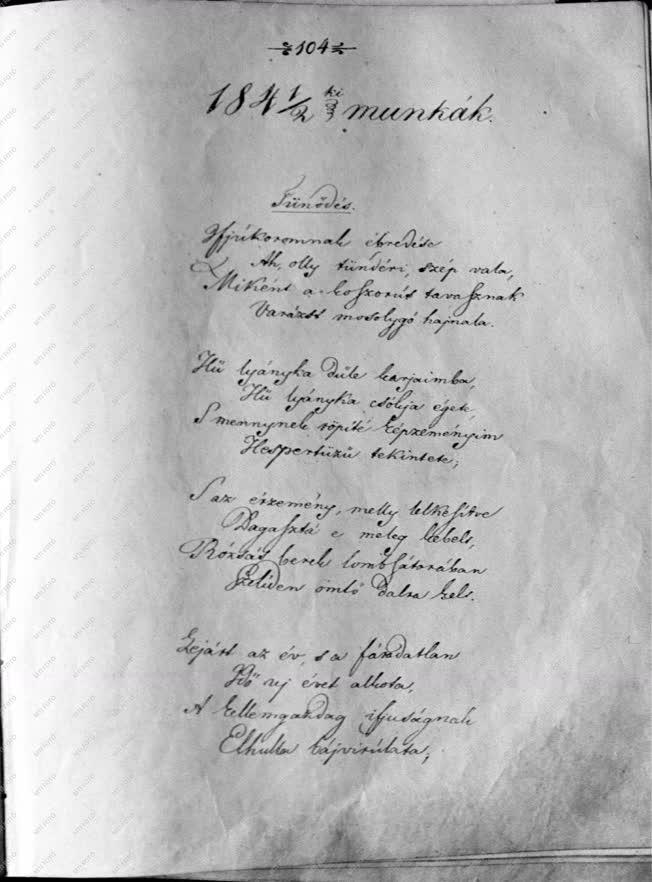 104
184 1/2 ki munkák.
Tünődés.
Ifjúkoromnak ébredése
Ah, olly tündéri, szép vala,
Miként a koszorús tavasznak
Varázst mosolygó hajnala.
Hű lyányka dűle karjaimba,
Hű lyányka csókja égete
S mennynek röpíté képzeményim
Hespertüzü tekintete;
S az érzemény, melly lelkesítve
Dagasztá e meleg kebelt,
Rózsás berek lombsátorában
Szeliden ömlő dalra kelt.
Lejárt az év, s a fáradatlan
Idő uj évet alkota,
A kellemgazdag ifjuságnak
Elhulla bájvirúlata;